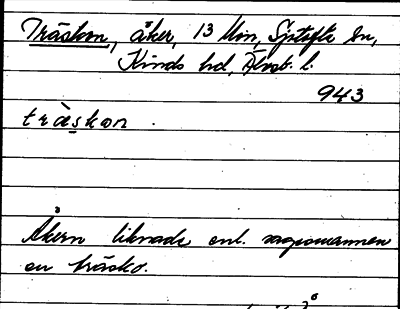 Träskon, åker, 13 Mon, Sjötofta sn,
Kinds hd, Älvsb. l.
943
träskon .
Åkern liknade enl. sagesmannen
en träsko.